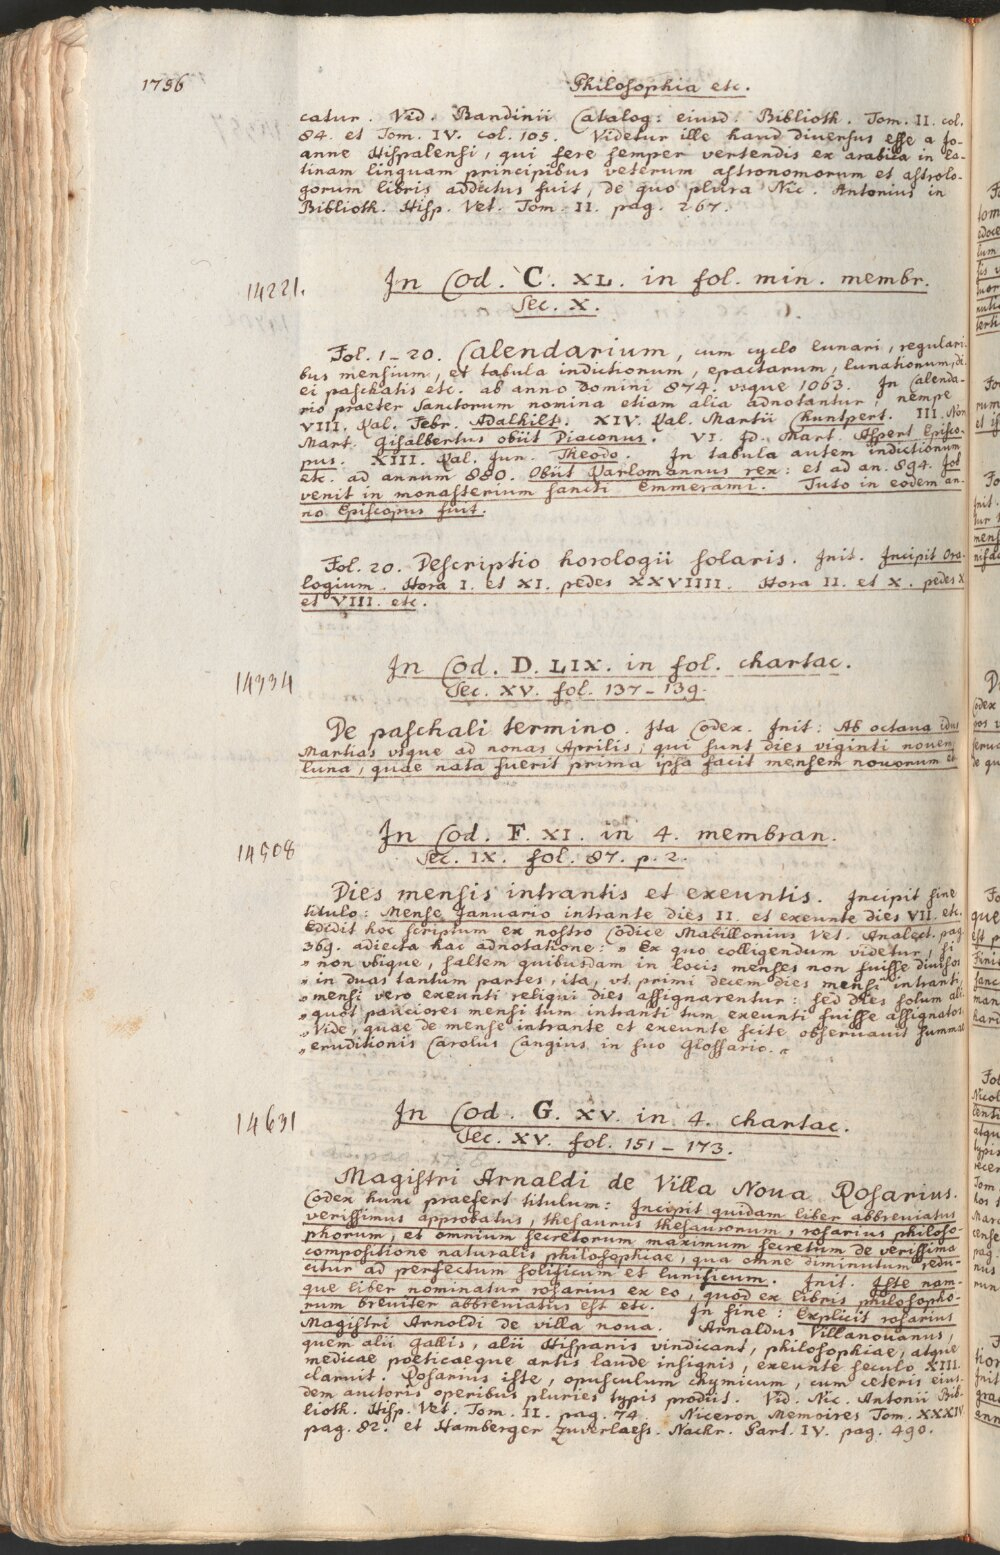 1796
Philosophia etc.
catur. Vid. Bandinii Catalog: eiusd. Biblioth. Tom. II. col.
84. et Tom. IV. col. 105. Videtur ille haud diuersus esse a Jo-
anne Hispalensi, qui fere semper vertendis ex arabica in la-
tinam linguam principibus veterum astronomorum et astrolo-
gorum libris addictus fuit, de quo plura Nic. Antonius in
Biblioth. Hisp. Vet. Tom. II. pag. 267.
14221.
In Cod. C. XL. in fol. min. membr.
Sec. X.
Fol. 1-20. Calendarium, cum cyclo lunari, regulari-
bus mensium, et tabula indictionum, epactarum, lunationum, di-
ei paschatis etc. ab anno Domini 874. vsque 1063. In Calenda-
rio praeter Sanctorum nomina etiam alia adnotantur, nempe
VIII. Kal. Febr. Adalhilt. XIV. Kal. Martii Chuntpert. III. Non
Mart. Gisalbertus obiit Diaconus. VI. Id. Mart. Aspert Episco-
pus. XIII. Kal. Jun. Theodo. In tabula autem indictionum
etc. ad annum 880. Obiit Karlomannus rex: et ad an. 894.
venit in monasterium sancti Emmerami. Tuto in eodem an-
no Episcopus fuit.
Fol. 20. Descriptio horologii solaris. Init. Incipit Oro-
logium. Hora I. et XI. pedes XXVIIII. Hora II. et X. pedes X
et VIII. etc.
14334
In Cod. D. LIX. in fol. chartac.
Sec. XV. fol. 137-139.
De paschali termino. Ita Codex. Init: Ab octaua idus
Martias vsque ad nonas Aprilis, qui sunt dies viginti nouem
luna, quae nata fuerit prima ipsa facit mensem nouorum et
14508
In Cod. F. XI. in 4. membran.
Sec. IX. fol. 87. p. 2.
Dies mensis intrantis et exeuntis. Incipit sine
titulo: Mense Januario intrante dies II. et exeunte dies VII. etc.
Edidit hoc scriptum ex nostro Codice Mabillonius Vet. Analect. pag.
369. adiecta hac adnotatione: „ Ex quo colligendum videtur, si
„ non vbique, saltem quibusdam in locis menses non fuisse diuisos
„ in duas tantum partes, ita, vt primi decem dies mensi intranti,
„ mensi vero exeunti reliqui dies assignarentur: sed dies solum ali-
„ quot pauciores mensi tum intranti tum exeunti fuisse assignatos
„ Vide, quae de mense intrante et exeunte scite obseruauit summae
„ eruditionis Carolus Cangius in suo Glossario. „
14631
In Cod. G. XV. in 4. chartac.
Sec. XV. fol. 151-173.
Magistri Arnaldi de Villa Noua Rosarius.
Codex hunc praefert titulum: Incipit quidam liber abbreviatus
verissimus approbatus, thesaurus thesaurorum, rosarius philoso-
phorum, et omnium secretorum maximum secretum de verissima
compositione naturalis philosophiae, qua omne diminutum redu-
citur ad perfectum solificum et lunificum. Init. Iste nam-
que liber nominatur rosarius ex eo, quod ex libris philosopho-
rum breuiter abbreuiatus est etc. In fine: Explicit rosarius
Magistri Arnoldi de villa noua. Arnaldus Villanouanus,
quem alii Gallis, alii Hispanis vindicant, philosophiae, atque
medicae poeticaeque artis laude insignis, exeunte seculo XIII.
claruit. Rosarius iste, opusculum chymicum, cum ceteris eius-
dem auctoris operibus pluries typis prodiit. Vid. Nic. Antonii Bib-
lioth. Hisp. Vet. Tom. II. pag. 74. Niceron Memoires Tom. XXXIV
pag. 82. et Hamberger Zuverlaess. Nachr. Part. IV. pag. 490.